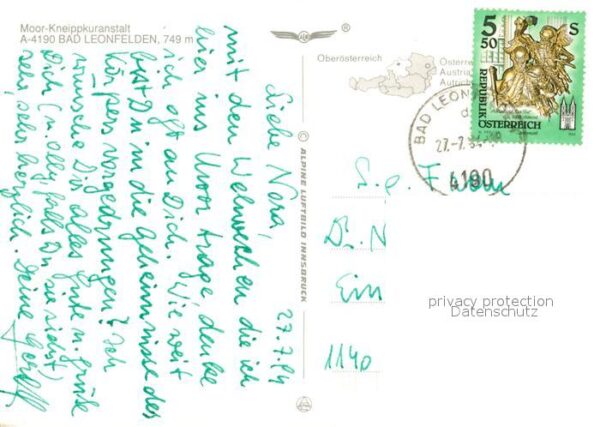 Moor-Kneippkuranstalt
A-4190 BAD LEONFELDEN, 749 m
27.7.94
Liebe Nora,
mit den Wehwechen die ich
hier ins Moor trage denke
ich oft an Dich. Wie weit
bist Du in die Geheimnisse des
Körpers vorgedrungen? Ich
wünsche Dir alles Gute u. grüße
Dich (u. Olly, falls Du sie siehst)
sehr, sehr herzlich. Deine
© ALPINE LUFTBILD INNSBRUCK
Oberösterreich
Österre
Austria
Autrich
BAD LEON
27.-7.
4190
5 50 S
REPUBLIK
ÖSTERREICH
S. g. F
Dr. N
Ein
1140
privacy protection
Datenschutz